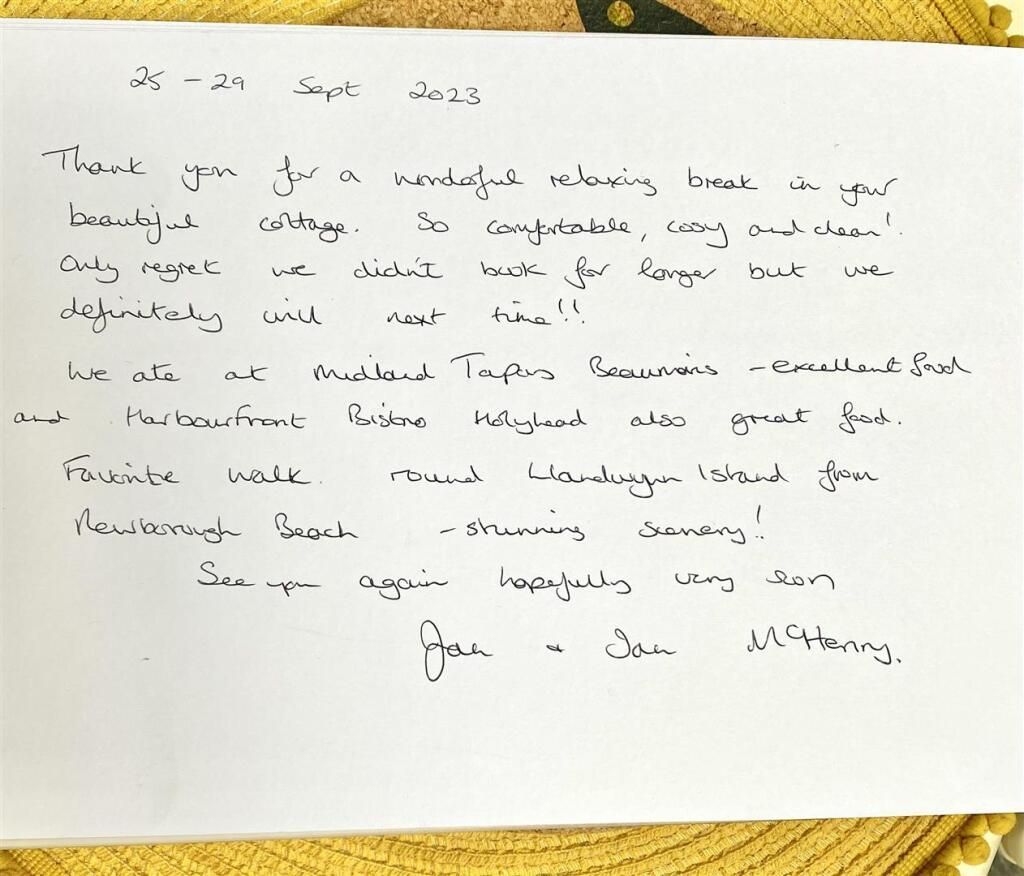 25 - 29 Sept 2023
Thank you for a wonderful relaxing break in your
beautiful cottage. So comfortable, cosy and clean!
Only regret we didn't book for longer but we
definitely will next time!!
We ate at Midland Tapas Beaumaris - excellent food
and Harbourfront Bistro Holyhead also great food.
Favorite walk round Llandwyn Island from
Newborough Beach - stunning scenery!
See you again hopefully very soon
Jan + Ian McHenry.